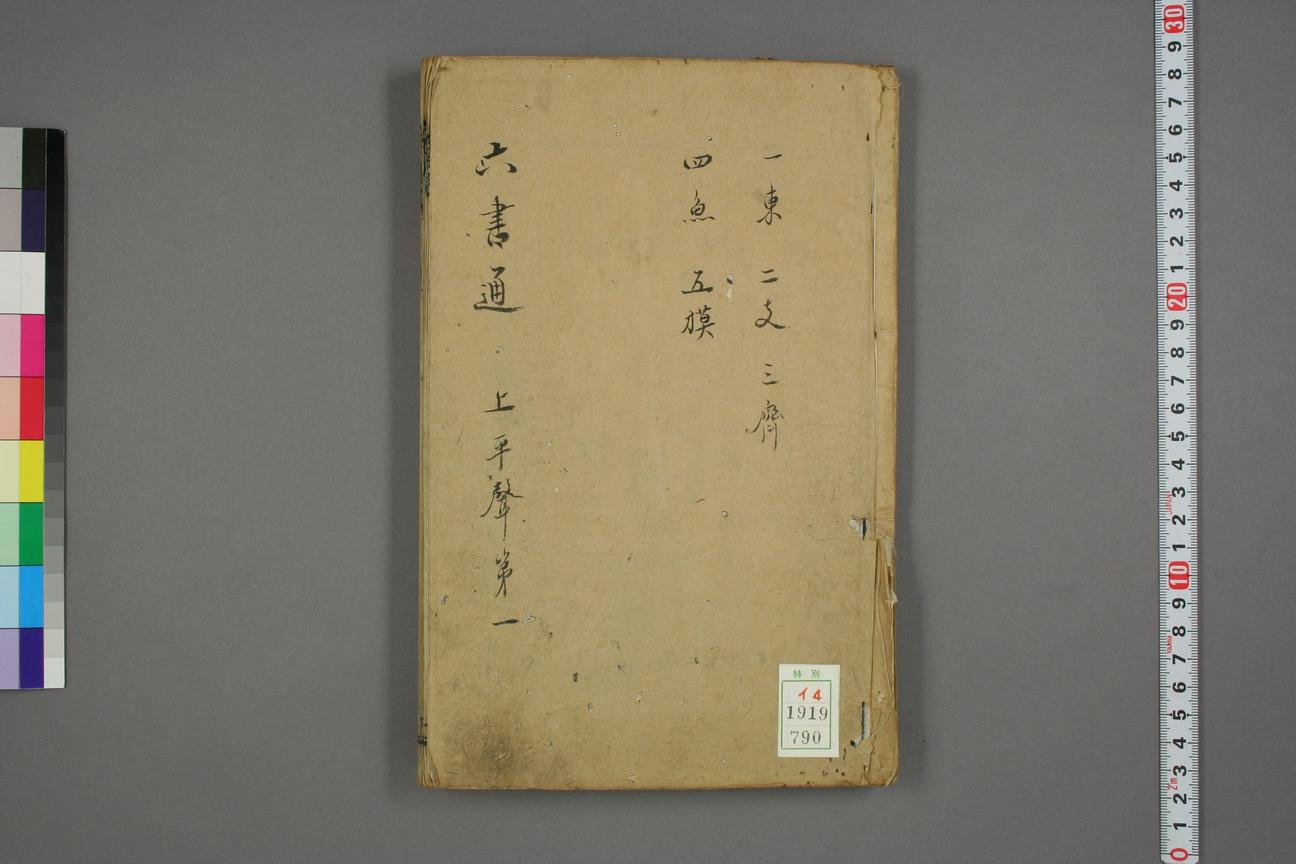 一東 二支 三齊
四魚 五模
六書通 上平聲第一
特別
イ4
1919
790
30
9
8
7
6
5
4
3
2
1
20
9
8
7
6
5
4
3
2
1
10
9
8
7
6
5
4
3
2
1
0
JAPAN
2m